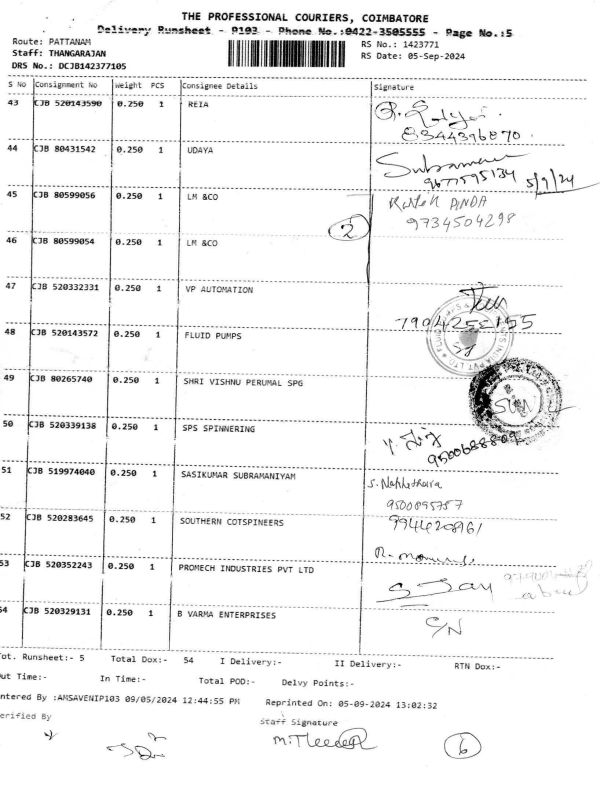 THE PROFESSIONAL COURIERS, COIMBATORE
Delivery Runsheet - P103 - Phone No.:0422-3505555 - Page No.:5
Route: PATTANAM RS No.: 1423771
Staff: THANGARAJAN RS Date: 05-Sep-2024
DRS No.: DCJB142377105
S No Consignment No Weight PCS Consignee Details Signature
43 CJB 520143590 0.250 1 REIA
8344396870
44 CJB 80431542 0.250 1 UDAYA
9677595134 5/9/24
45 CJB 80599056 0.250 1 LM &CO
9734504298
2
46 CJB 80599054 0.250 1 LM &CO
47 CJB 520332331 0.250 1 VP AUTOMATION
48 CJB 520143572 0.250 1 FLUID PUMPS
49 CJB 80265740 0.250 1 SHRI VISHNU PERUMAL SPG
50 CJB 520339138 0.250 1 SPS SPINNERING
9500688809
51 CJB 519974040 0.250 1 SASIKUMAR SUBRAMANIYAM
9500895757
52 CJB 520283645 0.250 1 SOUTHERN COTSPINEERS
9944208961
53 CJB 520352243 0.250 1 PROMECH INDUSTRIES PVT LTD
54 CJB 520329131 0.250 1 B VARMA ENTERPRISES
C/N
Tot. Runsheet:- 5 Total Dox:- 54 I Delivery:- II Delivery:- RTN Dox:-
Out Time:- In Time:- Total POD:- Delvy Points:-
ntered By :AMSAVENIP103 09/05/2024 12:44:55 PM Reprinted On: 05-09-2024 13:02:32
erified By Staff Signature
6